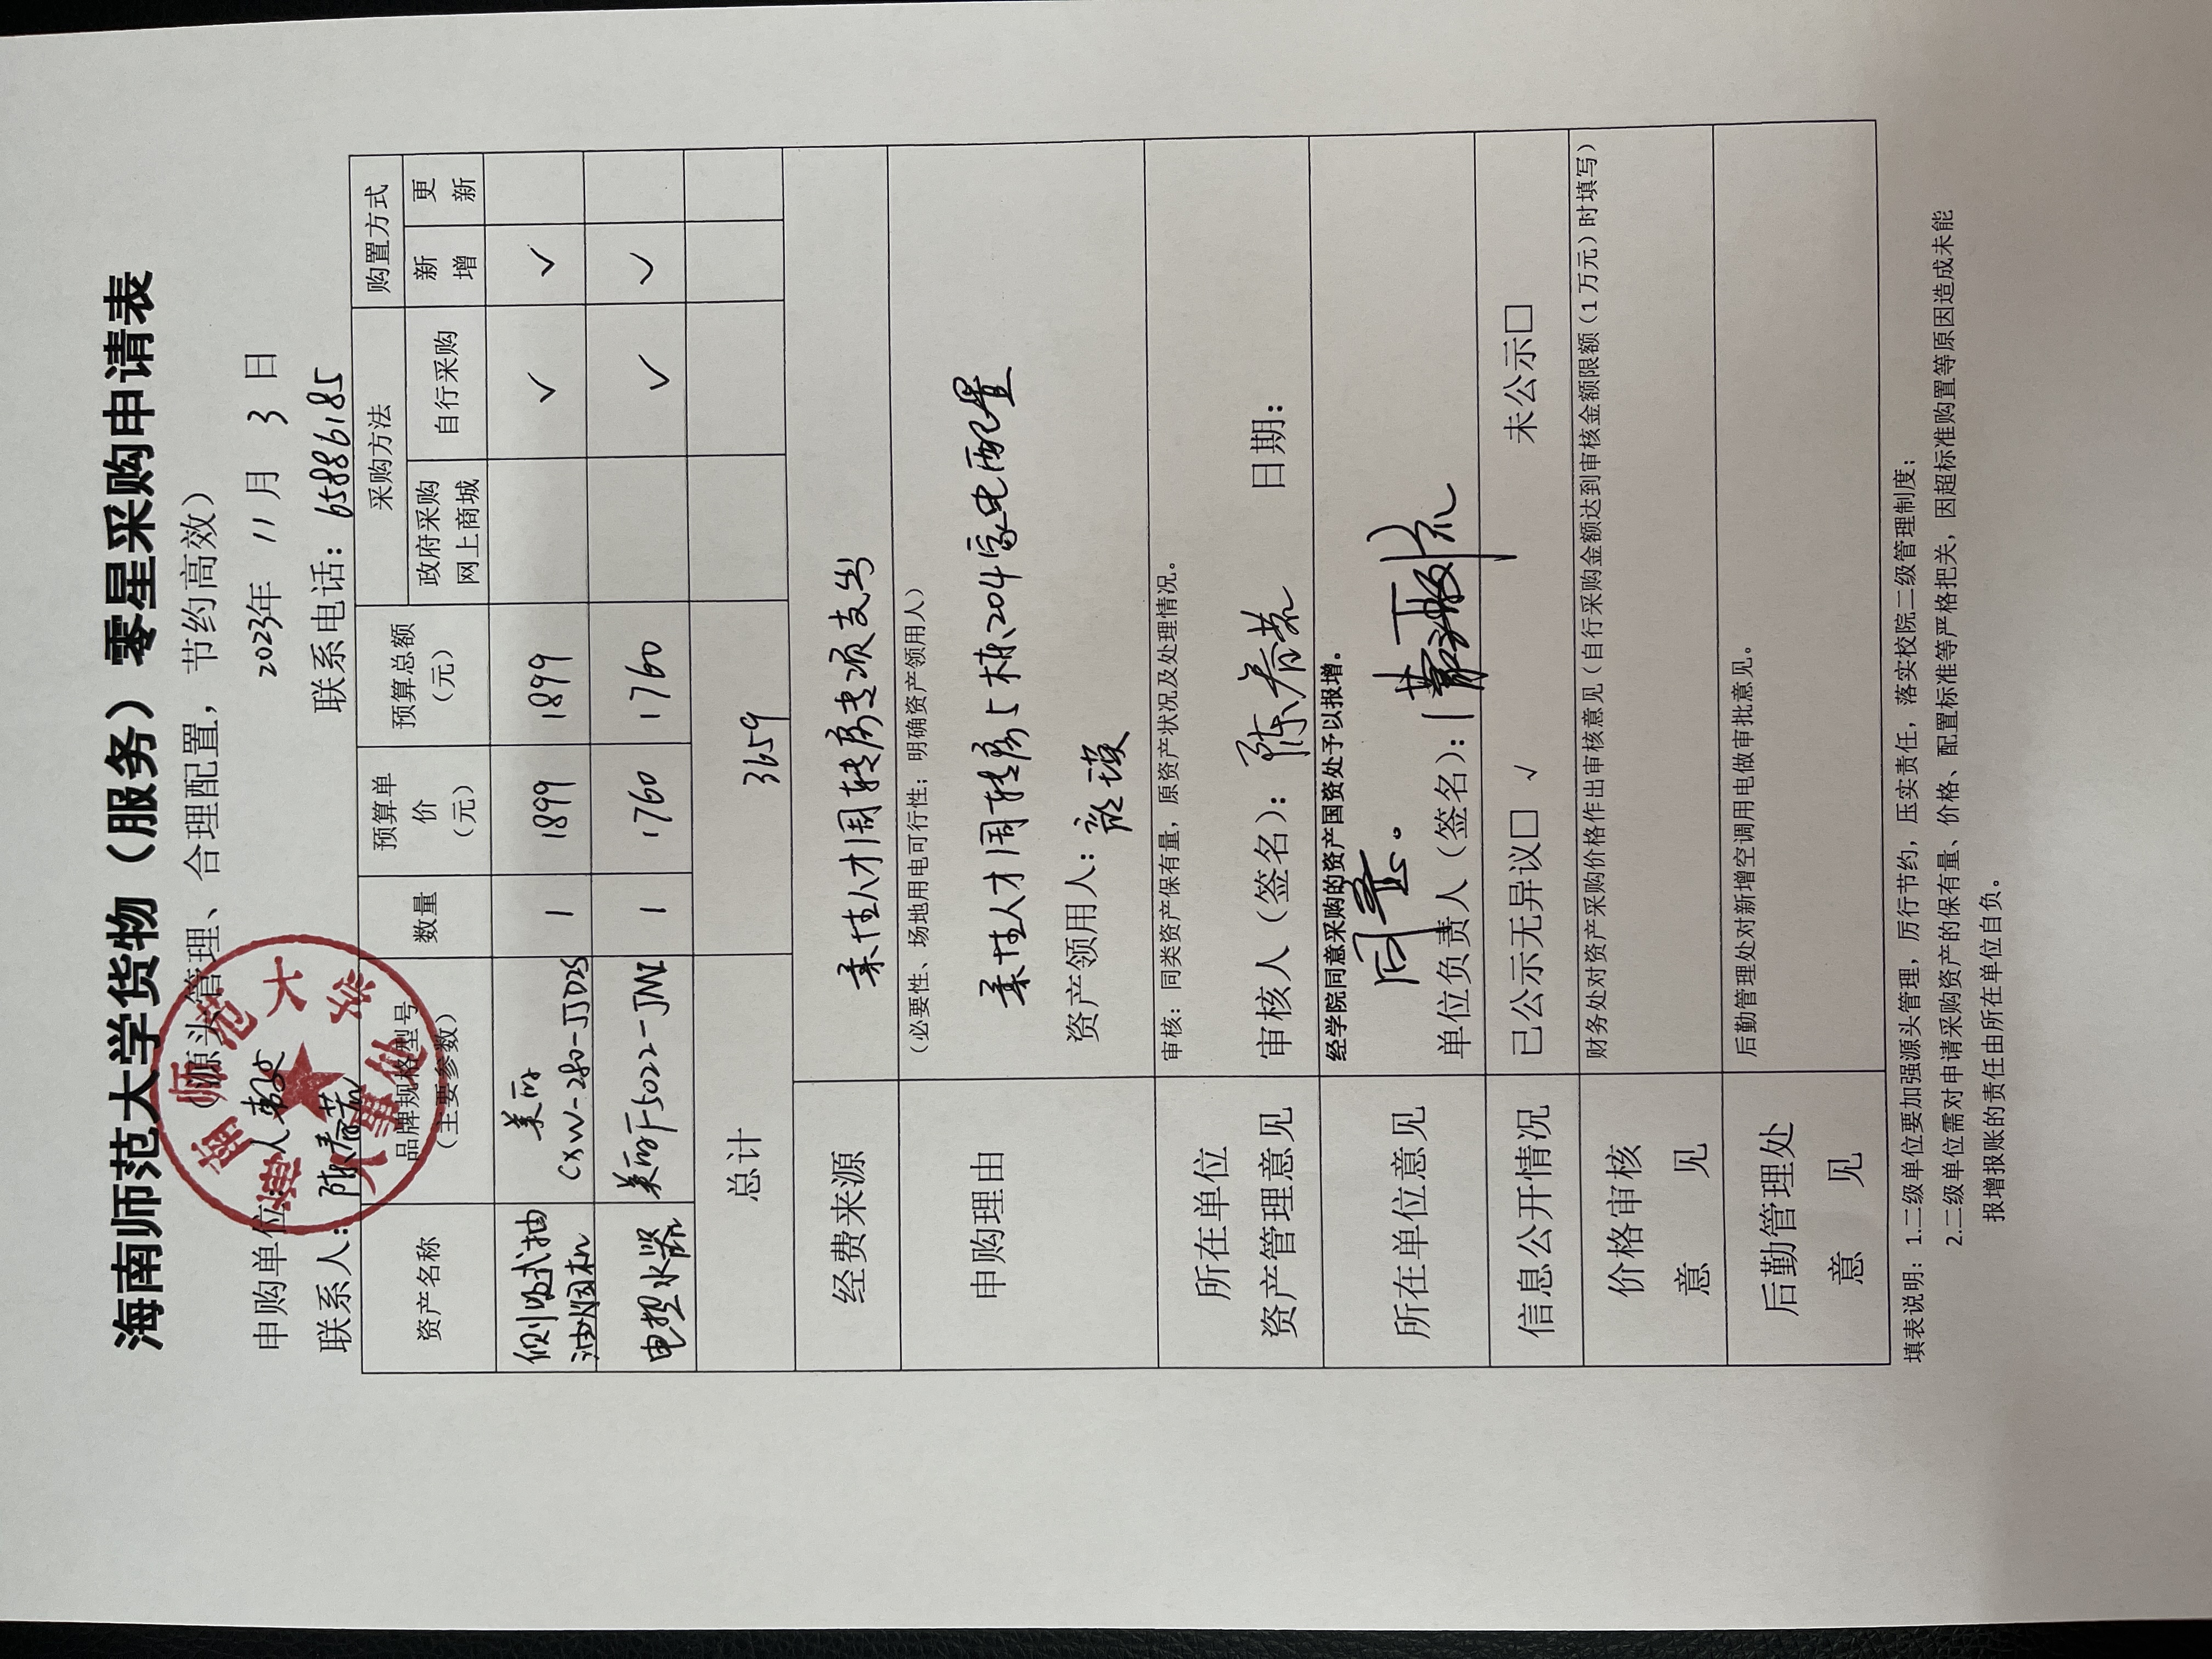 海南师范大学货物（服务）零星采购申请表
（源头管理、合理配置，节约高效）
2023年 11 月 3 日
申购单位: 人事处
联系人: 陈春苗 联系电话: 65886185
资产名称 品牌规格型号（主要参数） 数量 预算单价（元） 预算总额（元） 采购方法 购置方式
政府采购网上商城 自行采购 新增 更新
侧吸式抽油烟机 美的 CXW-280-JJD25 1 1899 1899 ✓ ✓
电热水器 美的F5022-JM1 1 1760 1760 ✓ ✓
总计 3659
经费来源 柔性人才周转房专项支出
申购理由 （必要性、场地用电可行性；明确资产领用人）
柔性人才周转房5栋204家电配置
资产领用人:
所在单位资产管理意见 审核：同类资产保有量，原资产状况及处理情况。
审核人（签名）: 陈春苗 日期:
所在单位意见 经学院同意采购的资产国资处予以报增。
同意。
单位负责人（签名）:
信息公开情况 已公示无异议□ ✓ 未公示□
价格审核意见 财务处对资产采购价格作出审核意见（自行采购金额达到审核金额限额（1万元）时填写）
后勤管理处意见 后勤管理处对新增空调用电做审批意见。
填表说明：1.二级单位要加强源头管理，厉行节约，压实责任，落实校院二级管理制度；
2.二级单位需对申请采购资产的保有量、价格、配置标准等严格把关，因超标准购置等原因造成未能
报增报账的责任由所在单位自负。